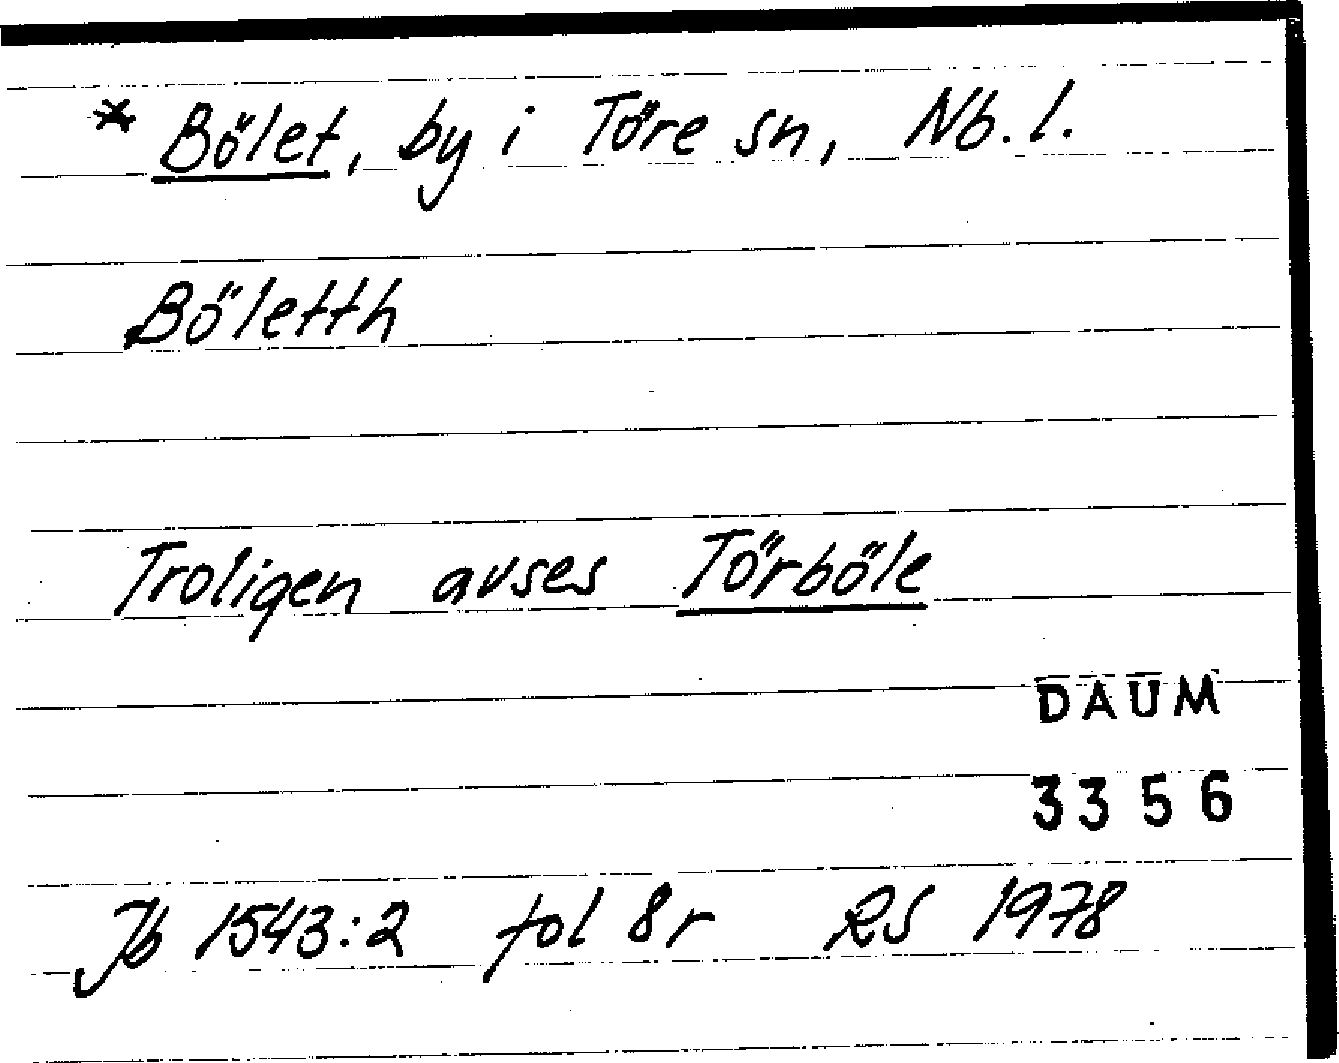 * Bölet, by i Töre sn, Nb. l.
Böletth
Troligen avses Törböle
DAUM
3356
Jb 1543:2 fol 8r RS 1978